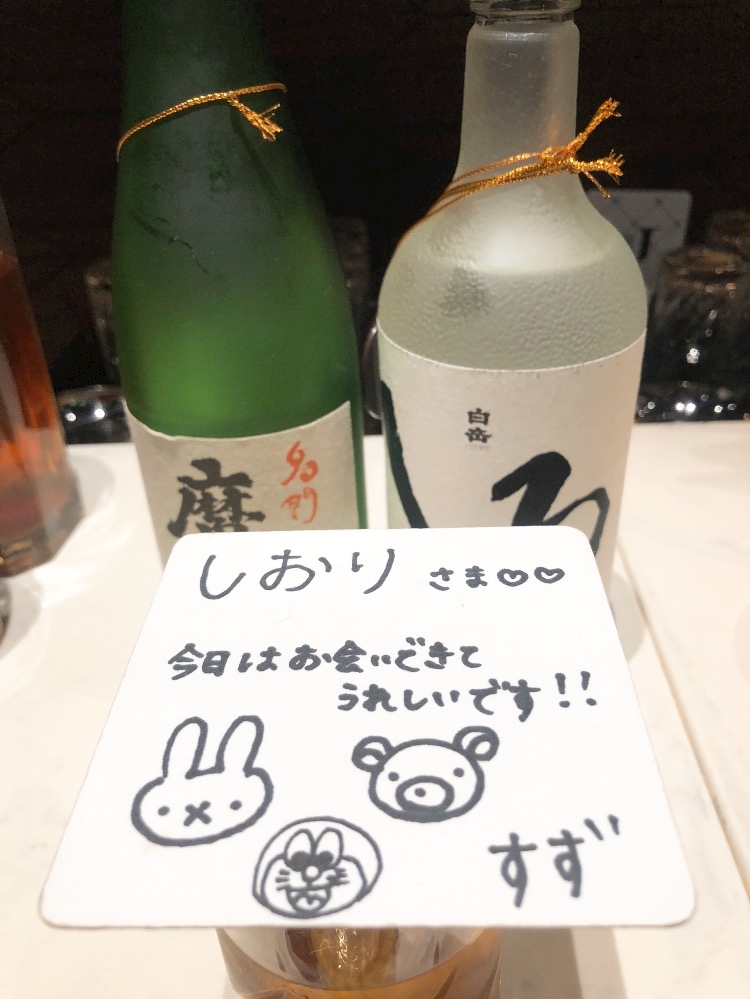 名門
磨
白岳
しろ
しおりさま♡♡
今日はお会いできて
うれしいです!!
すず